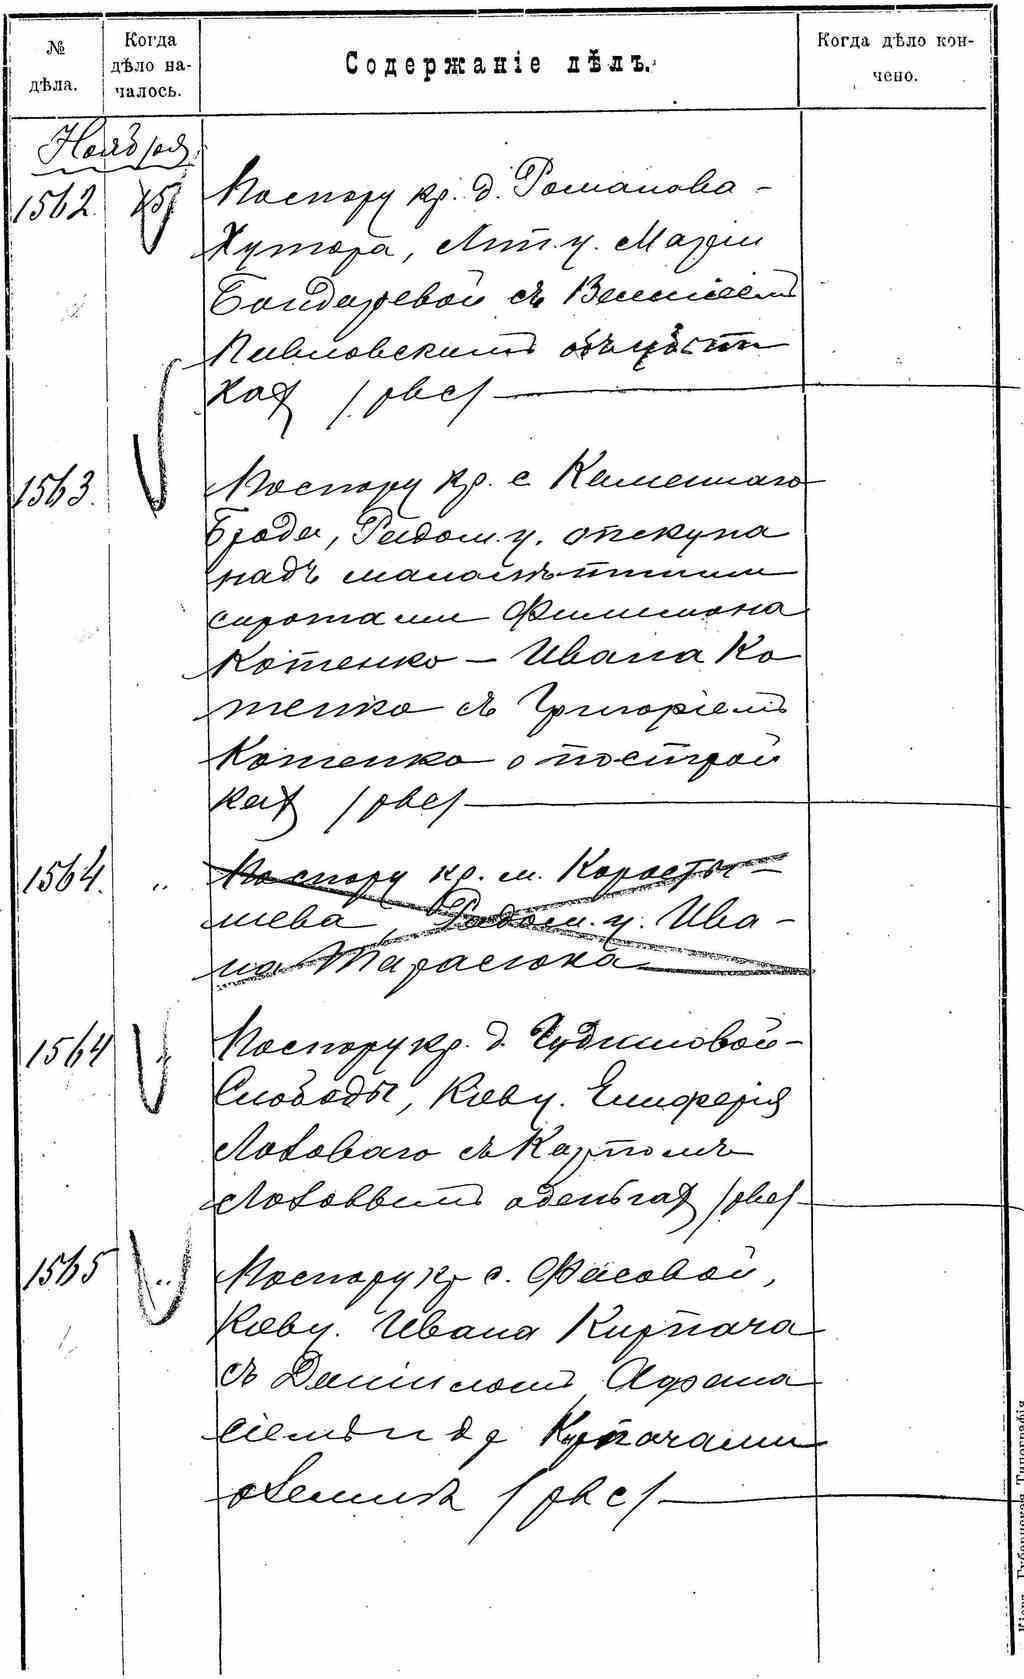 № дѣла.
Когда дѣло началось.
Содержаніе дѣлъ.
Когда дѣло кончено.
Ноября
1562. 15
По спору кр. д. Романова-
Хутора, Лип. у. Маріи
Бондаревой съ
Павловскимъ объ убыт
кахъ /рвс/
1563.
По спору кр. с. Каменнаго
Брода, Радом. у. опекуна
надъ малолѣтними
сиротами Филимона
Котенко — Ивана Ко
тенко съ Григоріемъ
Котенко о построй
кахъ /рвс/
1564. "
По спору кр. м. Коросты-
шева, Радом. у. Ива-
на Тарасюка
1564 "
По спору кр. д. Чудиновой-
Слободы, Кіев у. Елиферія
Лозоваго съ Карпомъ
Лозовымъ о деньгахъ /рвс/
1565 "
По спору кр с. Фасовой,
Кіев у. Ивана Кирпача
съ Даніиломъ, Афана
сіемъ и др Кирпачами
о землѣ /рвс/
Кіевъ. Губернская Типографія